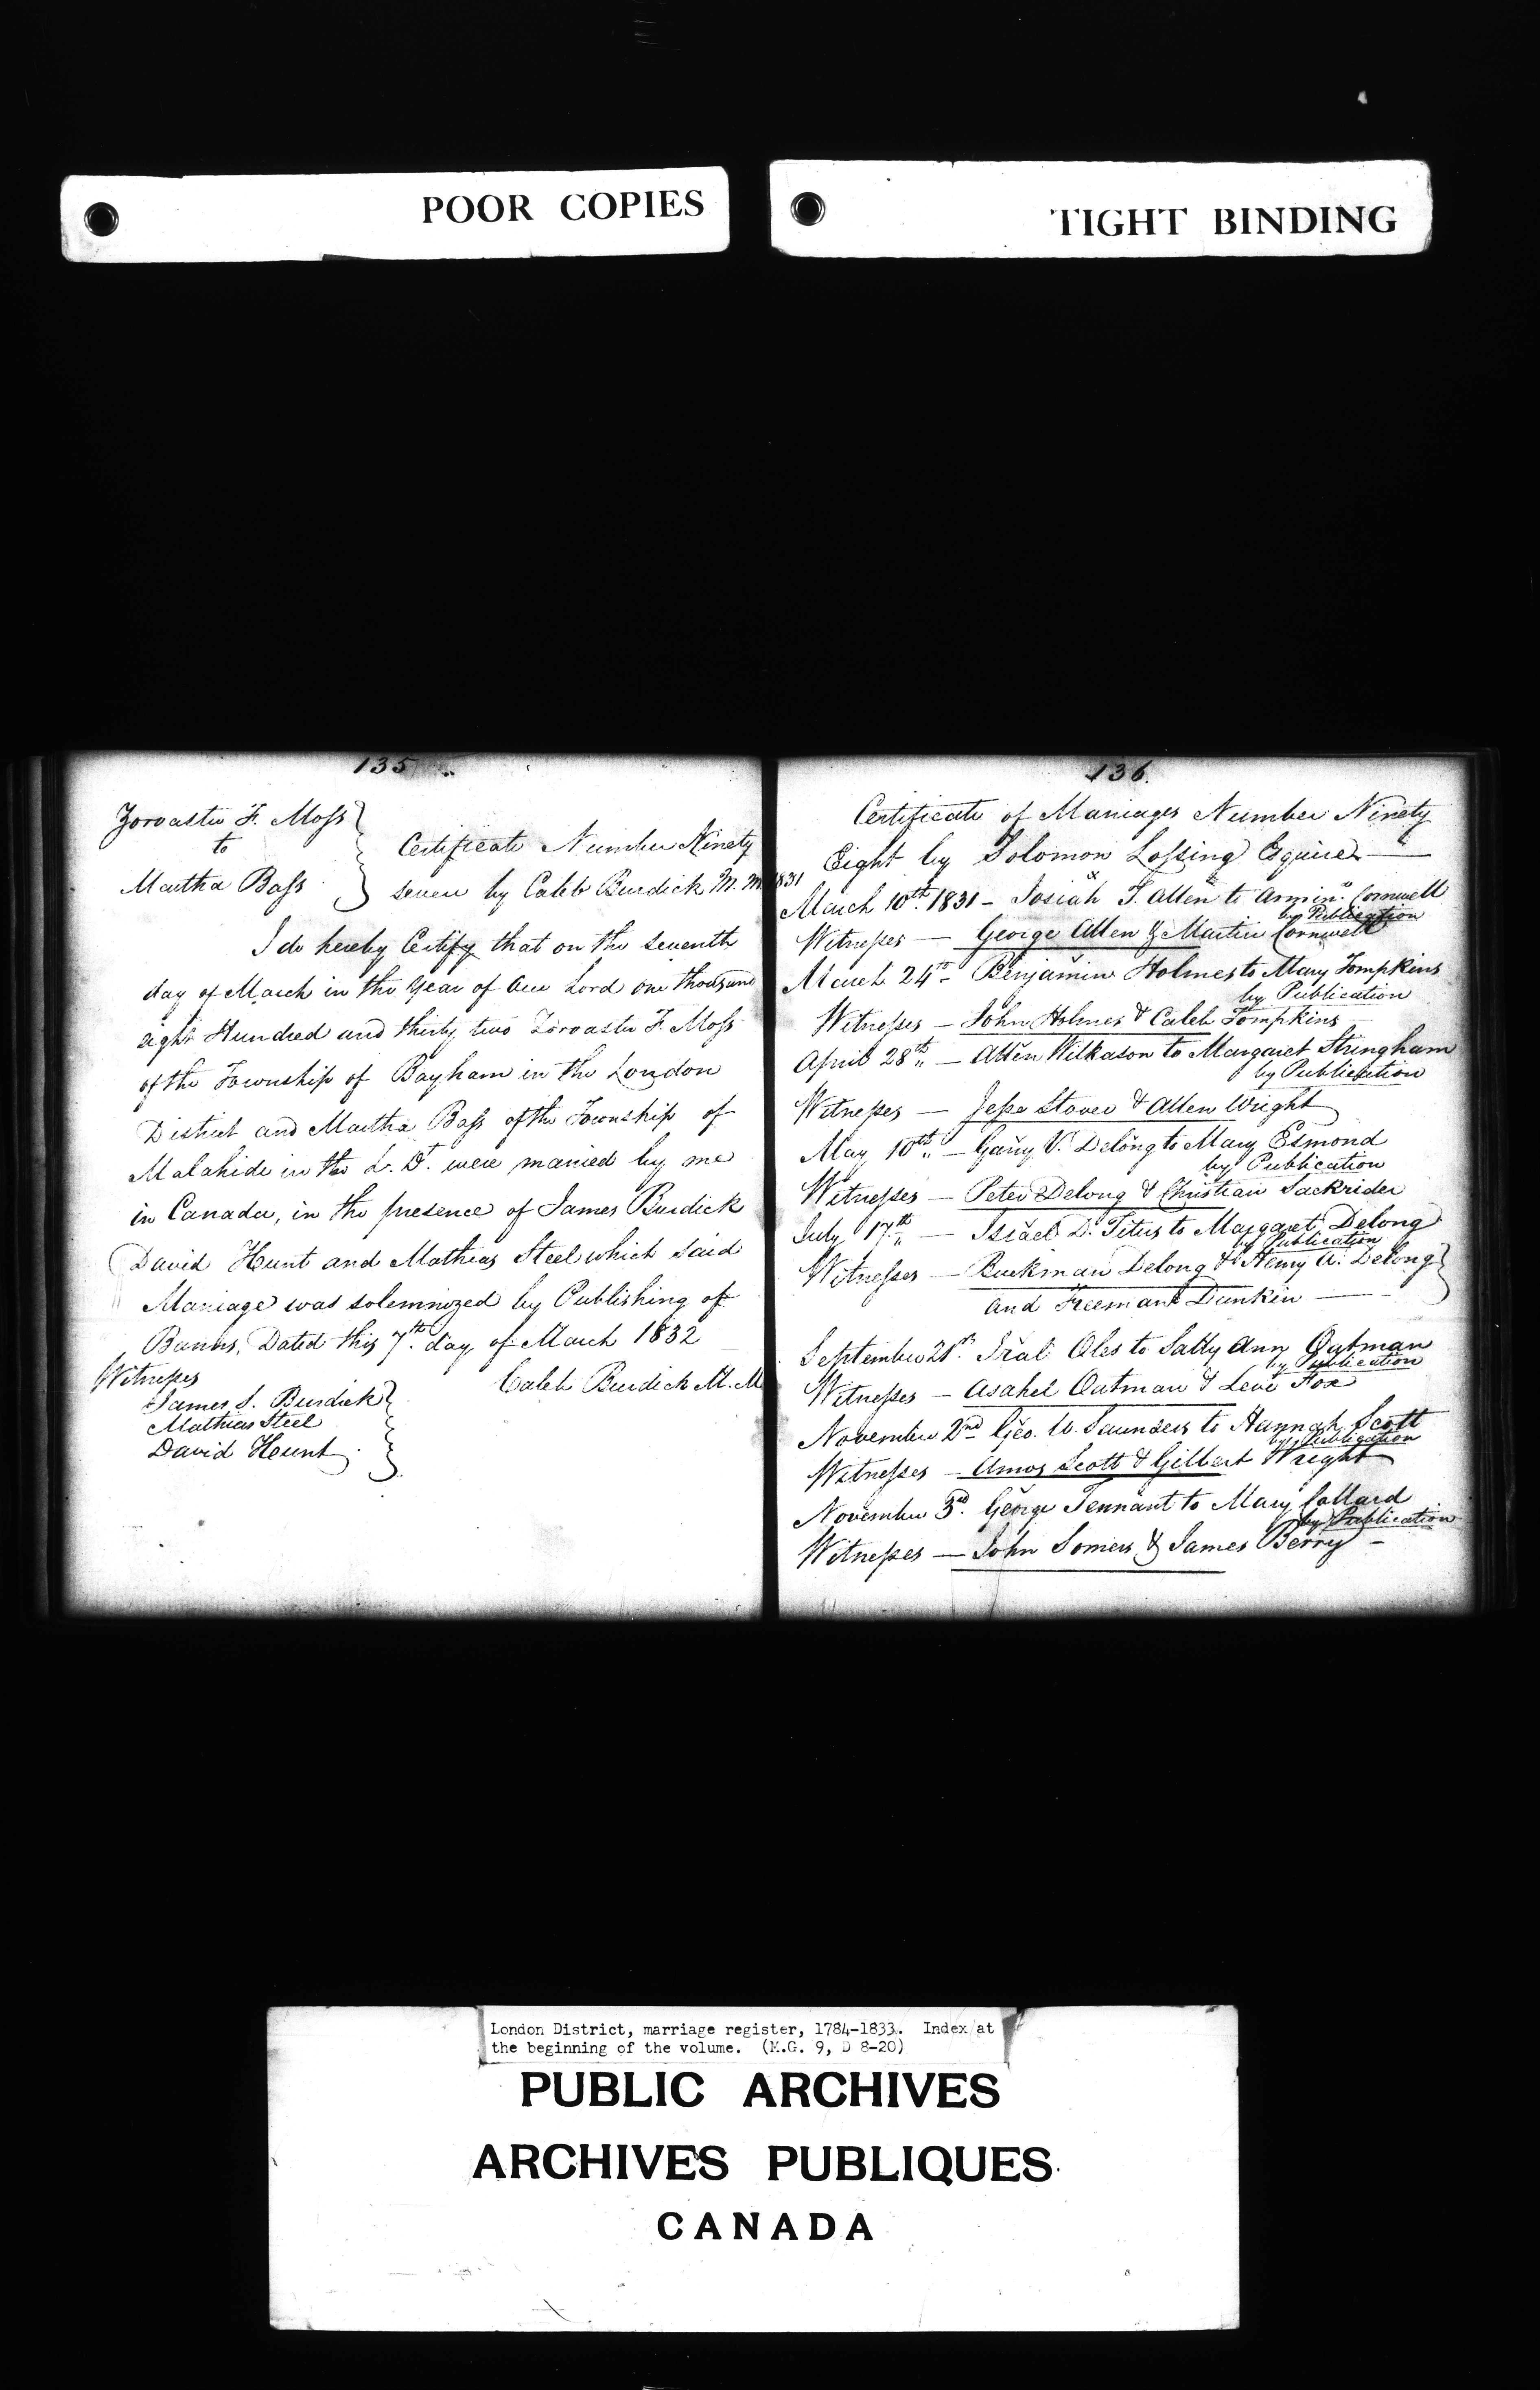 POOR COPIES
TIGHT BINDING
135
Zoroaster F. Moss
to
Martha Bass
Certificate Number Ninety
seven by Caleb Burdick M. M
I do hereby Certify that on the seventh
day of March in the Year of Our Lord one thousand
eight Hundred and thirty two Zoroaster F. Moss
of the Township of Bayham in the London
District and Martha Bass of the Township of
Malahide in the L. D. were married by me
in Canada, in the presence of James Burdick
David Hunt and Mathias Steel which said
Marriage was solemnized by Publishing of
Banns, Dated this 7th day of March 1832
Witnesses
Caleb Burdick M. M
James S. Burdick
Mathias Steel
David Hunt
136.
Certificate of Marriages Number Ninety
Eight by Solomon Lossing Esquire
1831
March 10th 1831 - Josiah T. Allen to Cornwell
by Publication
Witnesses — George Allen & Martin Cornwell
March 24th - Benjamin Holmes to Mary Tompkins
by Publication
Witnesses — John Holmes & Caleb Tompkins
April 28th — Allen Wilkason to Margaret Stringham
by Publication
Witnesses — Jesse Stover & Allen Wright
May 10th — Garry V. Delong to Mary Esmond
by Publication
Witnesses — Peter Delong & Christian Sackrider
July 17th — Israel D. Titus to Margaret Delong
by Publication
Witnesses — Buckman Delong & Henry A. Delong
and Freeman Dunkin —
September 21st Oles to Sally Ann Oatman
by Publication
Witnesses — Asahel Oatman & Levi Fox
November 2nd Geo. W. Saunders to Hannah Scott
by Publication
Witnesses — Amos Scott & Gilbert Wright
November 3rd George Tennant to Mary Collard
by Publication
Witnesses — John Somers & James Berry -
London District, marriage register, 1784-1833. Index at
the beginning of the volume. (M.G. 9, D 8-20)
PUBLIC ARCHIVES
ARCHIVES PUBLIQUES
CANADA